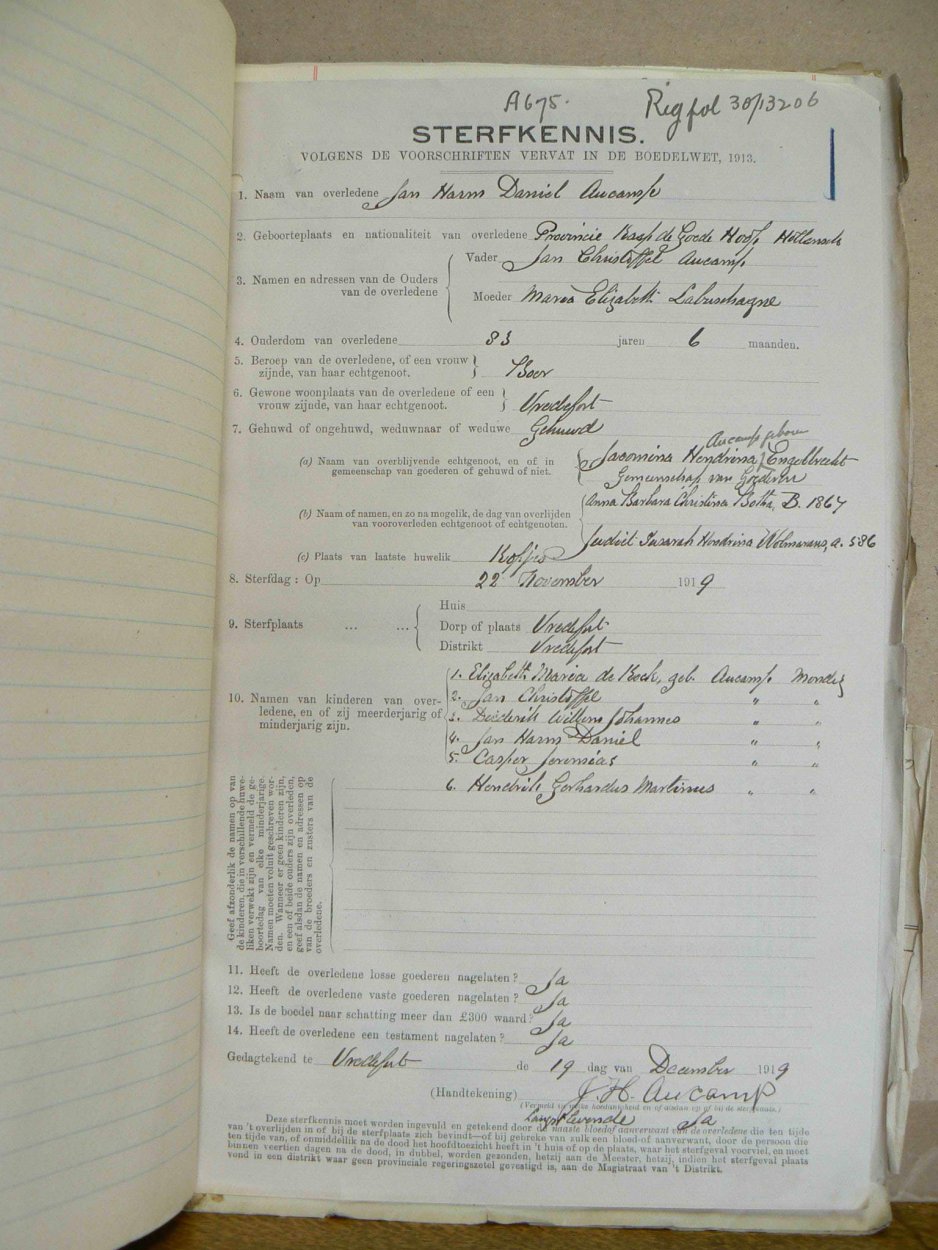 A675.
Reg fol 30/13206
STERFKENNIS.
VOLGENS DE VOORSCHRIFTEN VERVAT IN DE BOEDELWET, 1913.
1. Naam van overledene Jan Harm Daniel Aucamp
2. Geboorteplaats en nationaliteit van overledene Provincie Kaap de Goede Hoop Hollansch
3. Namen en adressen van de Ouders van de overledene
Vader Jan Christoffel Aucamp
Moeder Maria Elizabeth Labuschagne
4. Ouderdom van overledene 83 jaren 6 maanden.
5. Beroep van de overledene, of een vrouw zijnde, van haar echtgenoot. Boer
6. Gewone woonplaats van de overledene of een vrouw zijnde, van haar echtgenoot. Vredefort
7. Gehuwd of ongehuwd, weduwnaar of weduwe Gehuwd
Aucamp geboren
(a) Naam van overblijvende echtgenoot, en of in gemeenschap van goederen of gehuwd of niet. Jacomina Hendrina Engelbrecht
Gemeenschap van Goederen
(b) Naam of namen, en zo na mogelik, de dag van overlijden van vooroverleden echtgenoot of echtgenoten.
Anna Barbara Christina Botha, B. 1867
Hendrina Wolmarans, a. 586
(c) Plaats van laatste huwelik Kopjes
8. Sterfdag : Op 22 November 1919
9. Sterfplaats ... ...
Huis
Dorp of plaats Vredefort
Distrikt Vredefort
10. Namen van kinderen van overledene, en of zij meerderjarig of minderjarig zijn.
1. Elizabeth Maria de Kock, geb. Aucamp Mondig
2. Jan Christoffel " "
3. Diederik Willem Johannes " "
4. Jan Harm Daniel " "
5. Casper Jeremias " "
6. Hendrik Gerhardus Martinus " "
Geef afzonderlik de namen op van
de kinderen, die in verschillende huwe-
liken verwekt zijn en vermeld de ge-
boortedag van elke minderjarige.
Namen moeten voluit geschreven wor-
den. Wanneer er geen kinderen zijn,
en een of beide ouders zijn overleden,
geef alsdan de namen en adressen op
van de broeders en zusters van de
overledene.
11. Heeft de overledene losse goederen nagelaten ? Ja
12. Heeft de overledene vaste goederen nagelaten ? Ja
13. Is de boedel naar schatting meer dan £300 waard ? Ja
14. Heeft de overledene een testament nagelaten ? Ja
Gedagtekend te Vredefort de 19 dag van December 1919
(Handtekening) J. H. Aucamp
(Vermeld in welke hoedanigheid en of aldan op of bij de sterfplaats.)
Langstlevende Ja
Deze sterfkennis moet worden ingevuld en getekend door de naaste bloed of aanverwant van de overledene die ten tijde
van 't overlijden in of bij de sterfplaats zich bevindt—of bij gebreke van zulk een bloed of aanverwant, door de persoon die
ten tijde van, of onmiddellik na de dood het hoofdtoezicht heeft in 't huis of op de plaats, waar het sterfgeval voorviel, en moet
binnen veertien dagen na de dood, in dubbel, worden gezonden, hetzij aan de Meester, hetzij, indien het sterfgeval plaats
vond in een distrikt waar geen provinciale regeringszetel gevestigd is, aan de Magistraat van 't Distrikt.